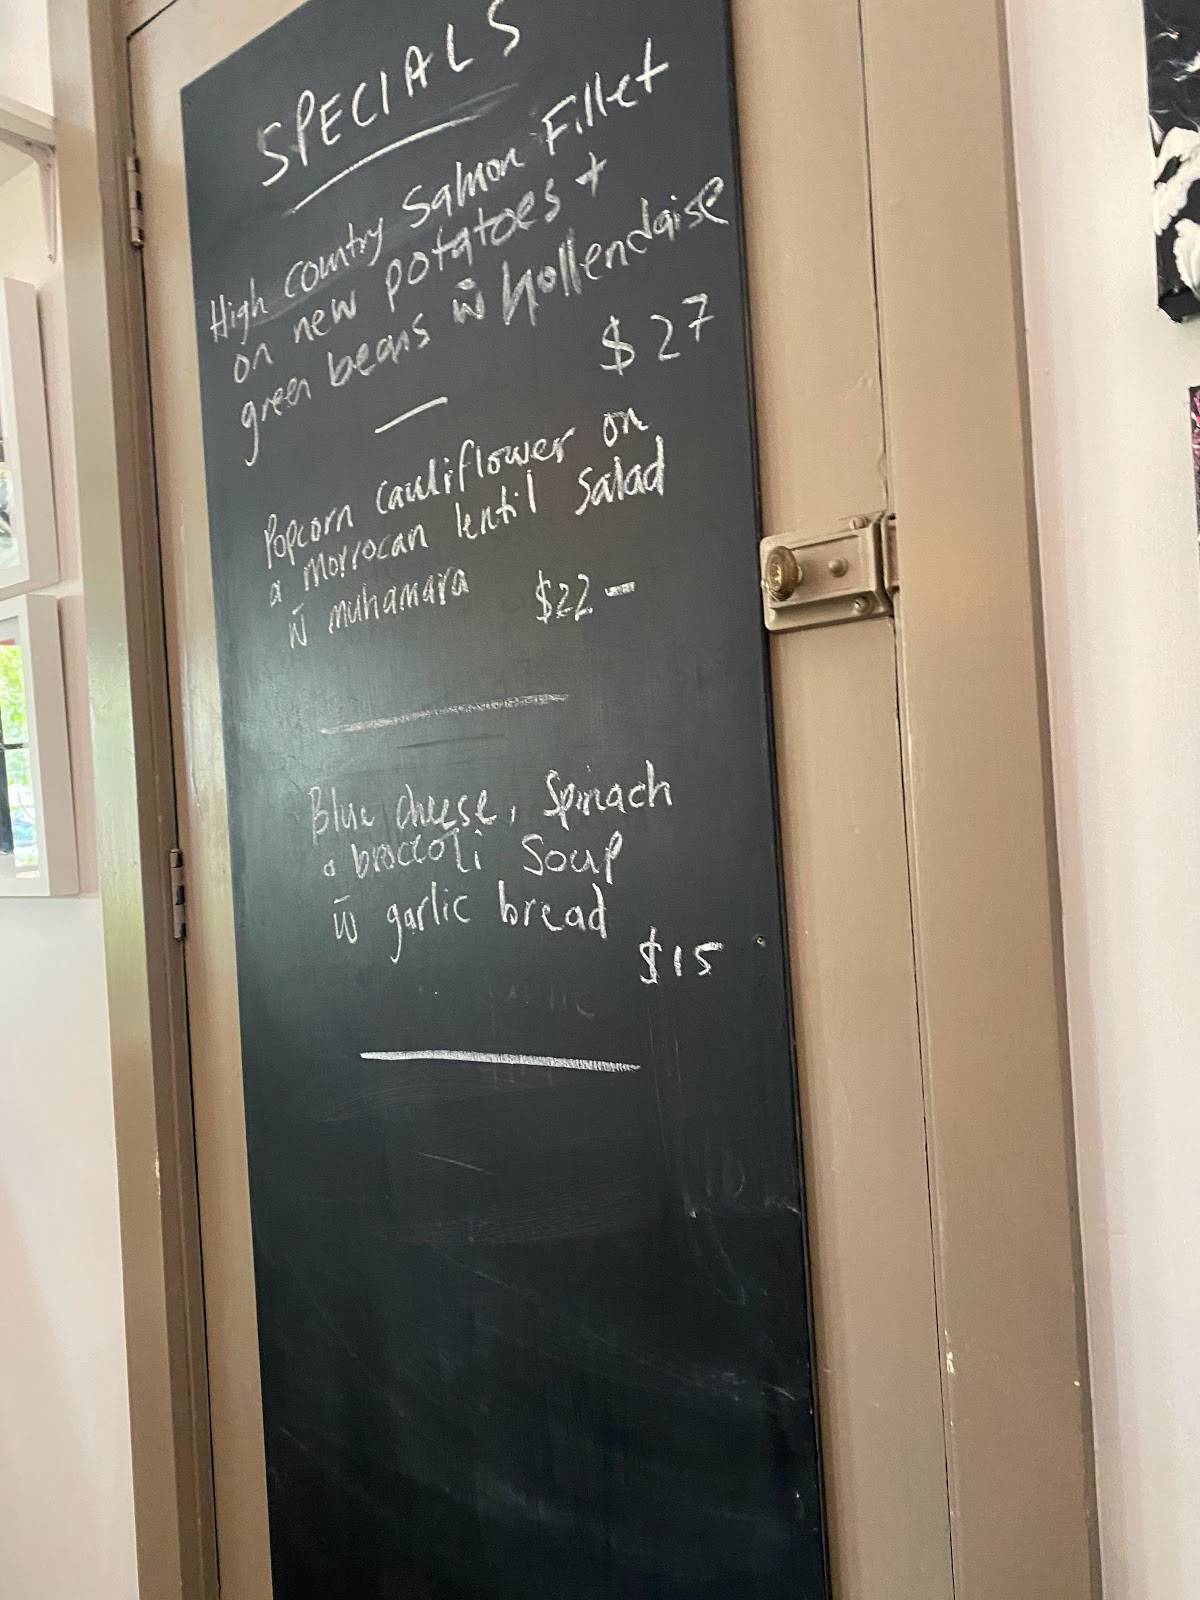 SPECIALS
High country Salmon Fillet
on new potatoes +
green beans w̄ hollendaise
$27
Popcorn cauliflower on
a morrocan lentil salad
w̄ muhamara $22-
Blue cheese, Spinach
a broccoli Soup
w̄ garlic bread
$15